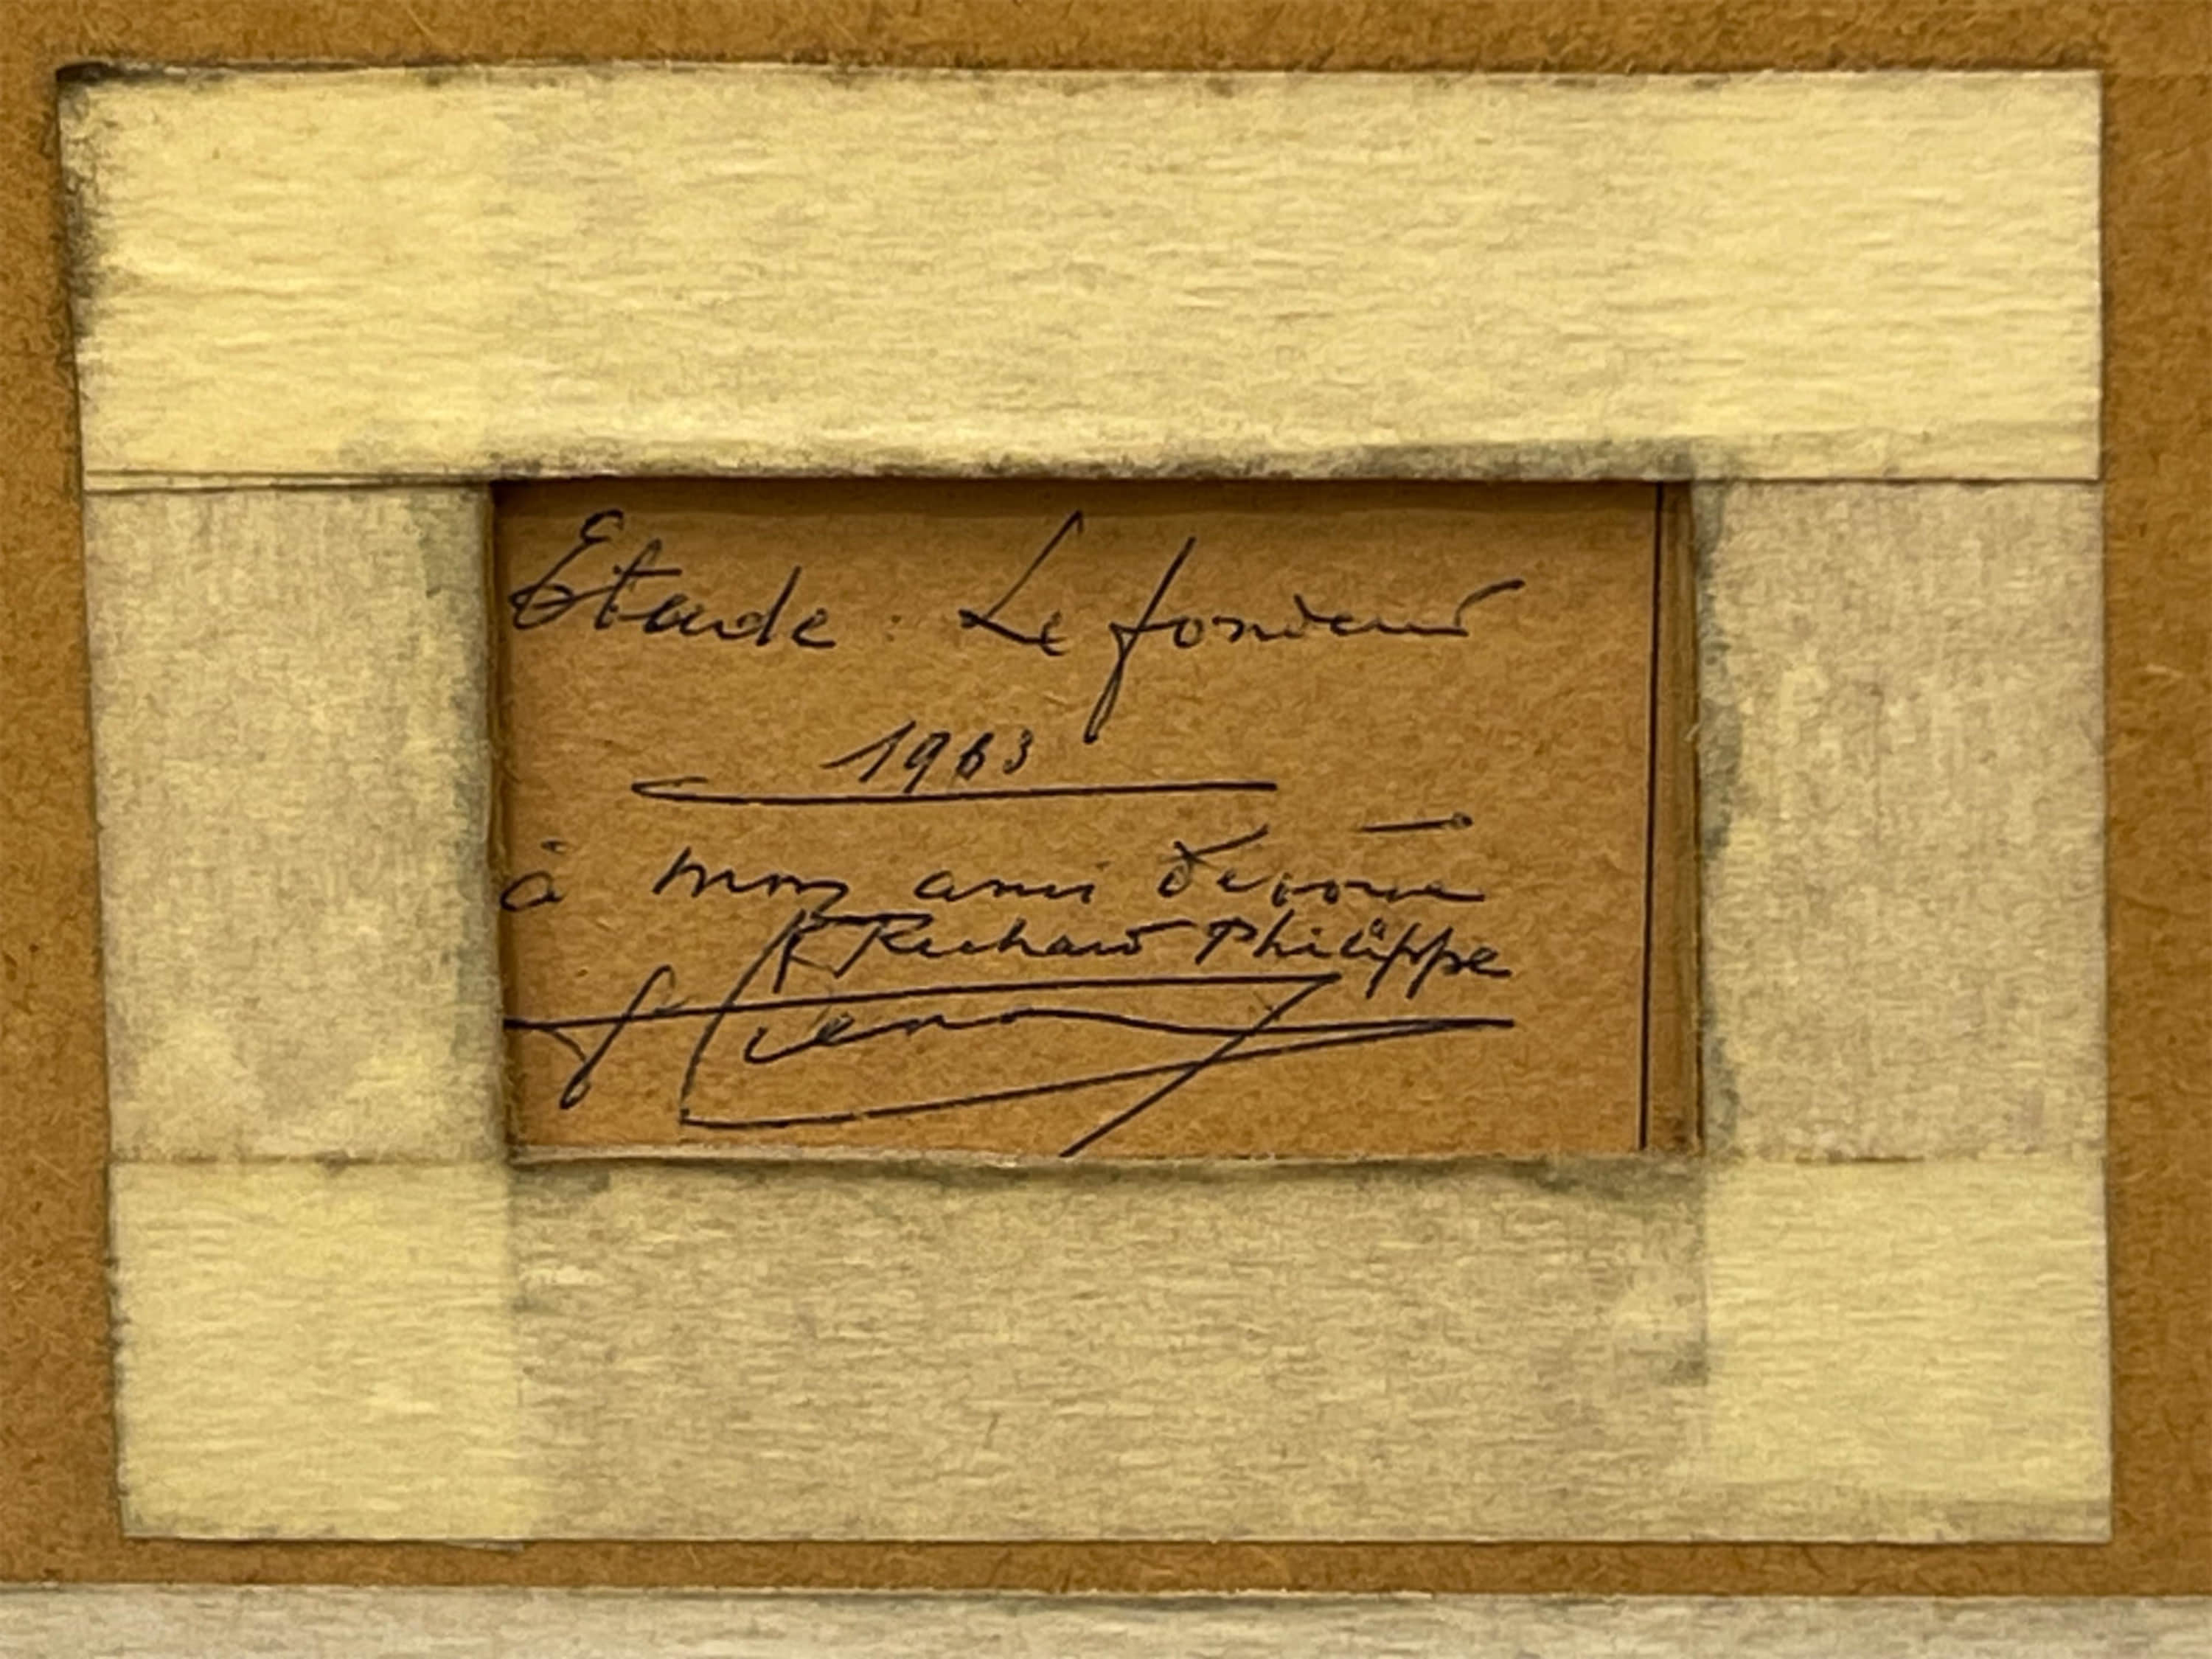 Etude : Le fondeur
1963
à mon ami dévoué
Richard Philippe